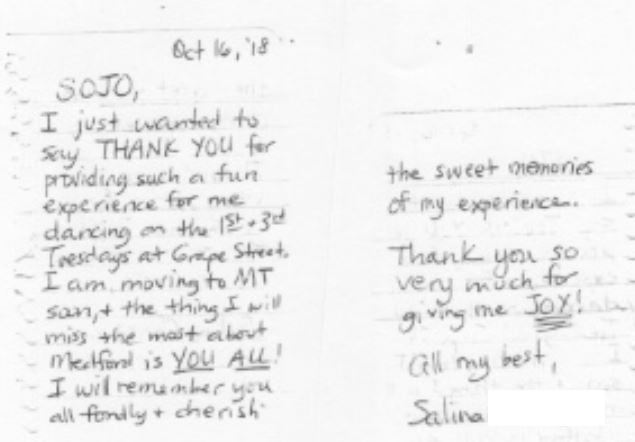 Oct 16, '18
SOJO,
I just wanted to
say THANK YOU for
providing such a fun
experience for me
dancing on the 1st + 3rd
Tuesdays at Grape Street.
I am moving to MT
soon, + the thing I will
miss the most about
Medford is YOU ALL!
I will remember you
all fondly + cherish
the sweet memories
of my experience.
Thank you so
very much for
giving me JOY!
All my best,
Salina